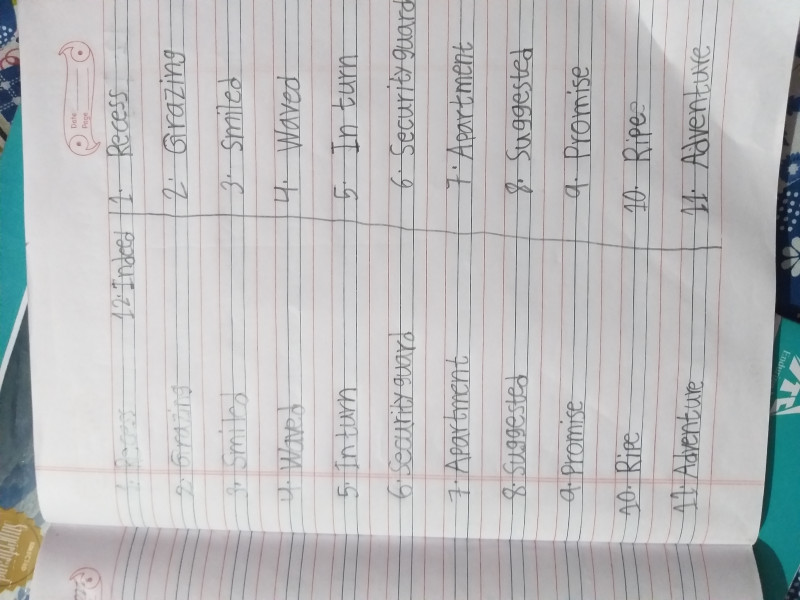 Date
Page
1. Recess
2. Grazing
3. Smiled
4. Waved
5. Inturn
6. Security guard
7. Apartment
8. Suggested
9. Promise
10. Ripe
11. Adventure
12. Indeed
1. Recess
2. Grazing
3. Smiled
4. Waved
5. In turn
6. Security guard
7. Apartment
8. Suggested
9. Promise
10. Ripe
11. Adventure